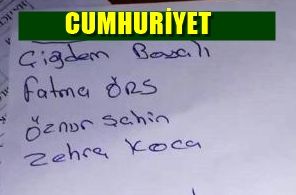 CUMHURİYET
Çiğdem Bozalı
Fatma ÖRS
Öznur Şahin
Zehra Koca